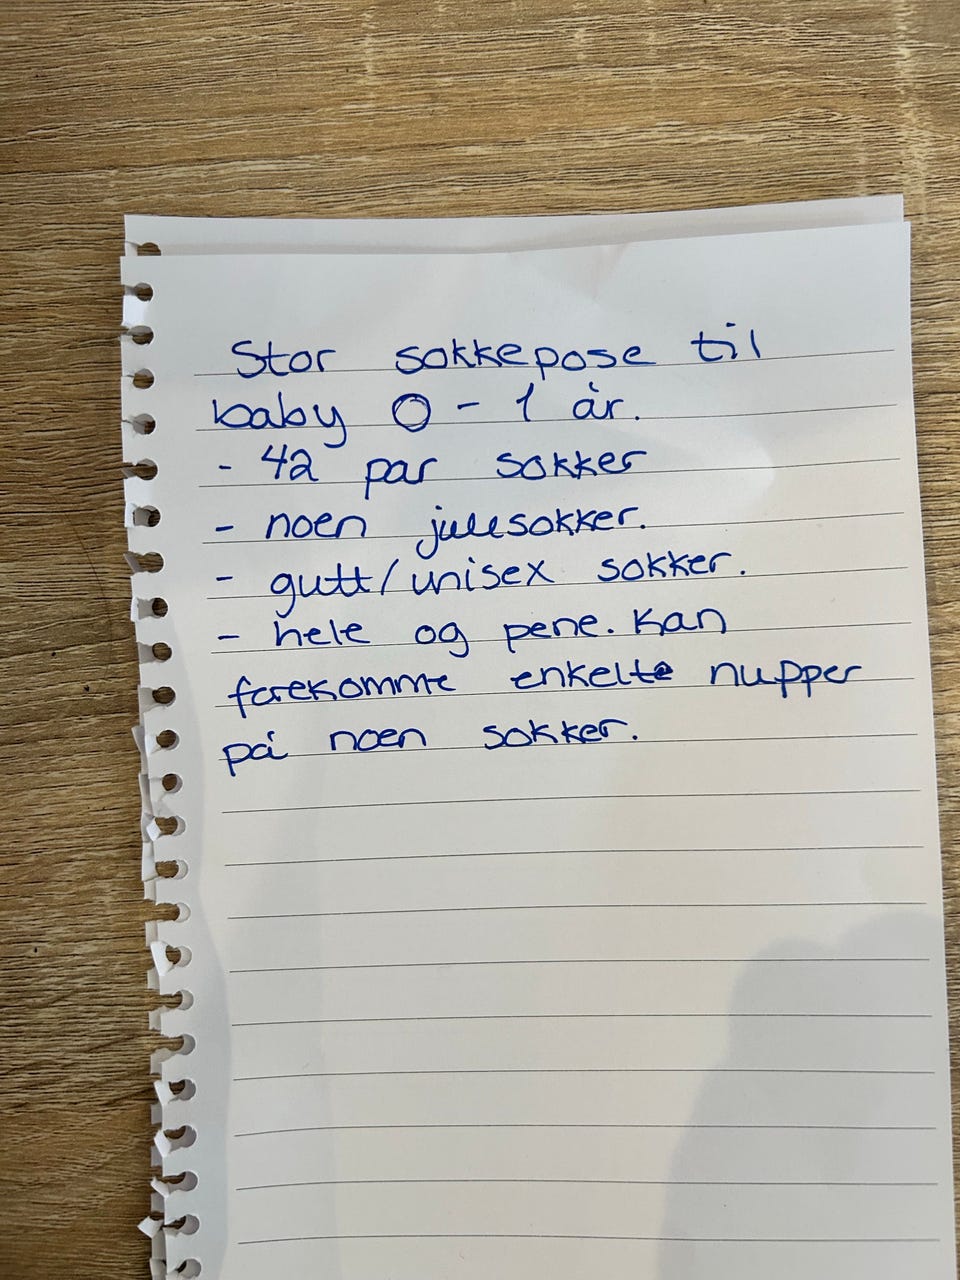 Stor sokkepose til
baby 0 - 1 år.
- 42 par sokker
- noen julesokker.
- gutt/unisex sokker.
- hele og pene. Kan
forekomme enkelte nupper
på noen sokker.